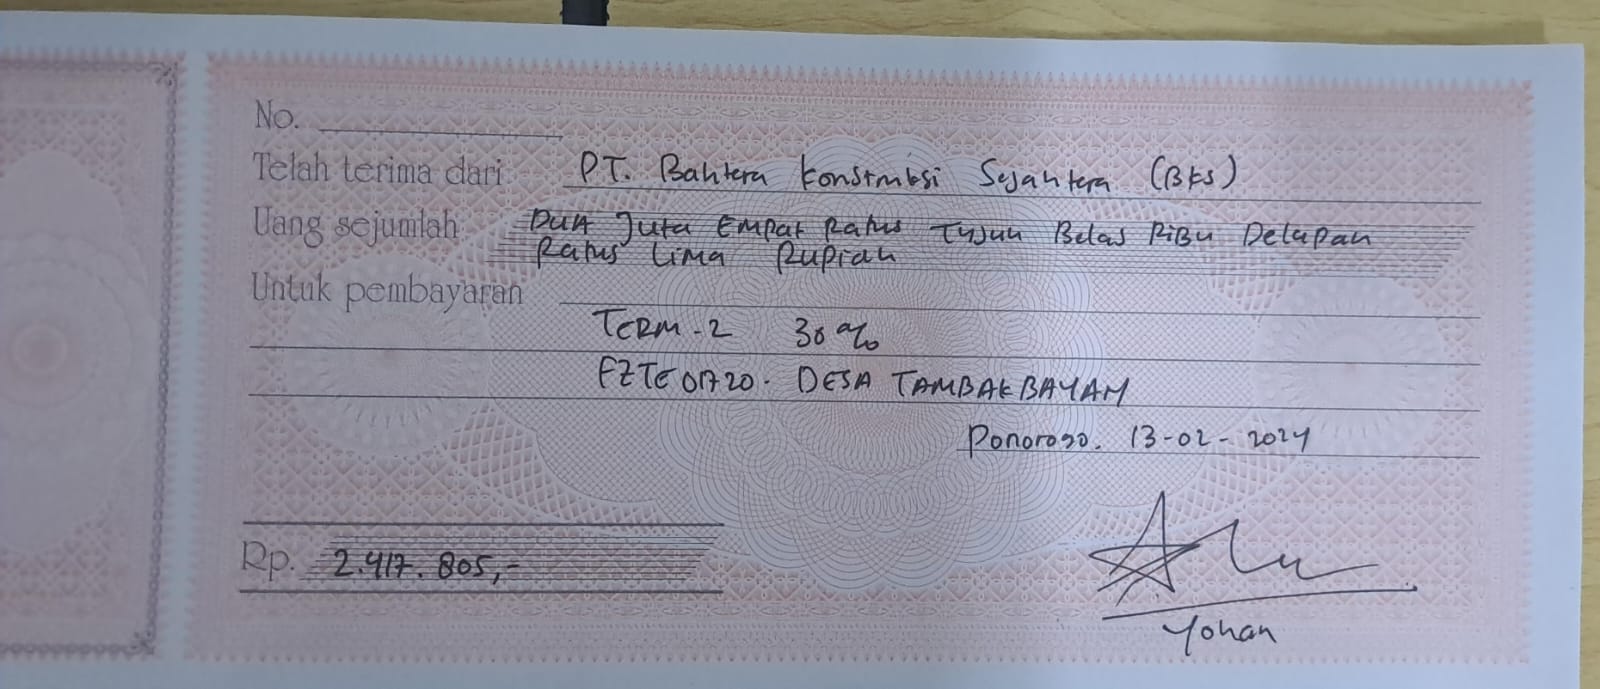 No.
Telah terima dari: PT. Bahtera Konstruksi Sejahtera (BKS)
Uang sejumlah: Dua Juta Empat Ratus Tujuh Belas Ribu Delapan
Ratus Lima Rupiah
Untuk pembayaran
TERM-2 30%
FZTE01720. DESA TAMBAKBAYAN
Ponorogo. 13-02-2024
Rp. 2.417.805,-
Yohan